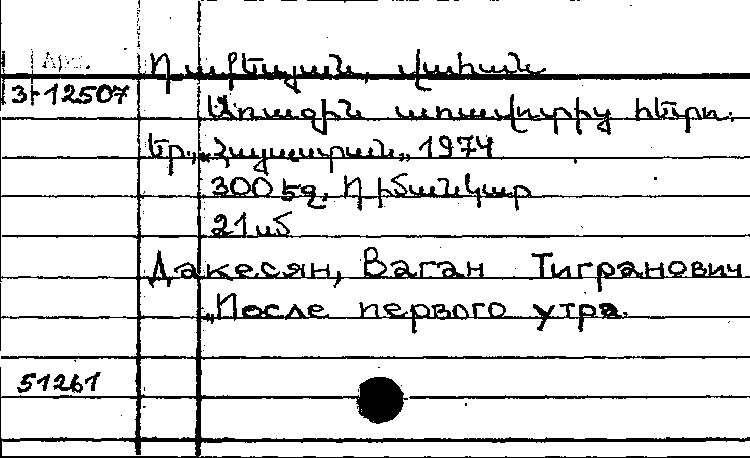 Арх.
Դավեսյան, Վահան
3-12507
Առաջին առավոտից հետո.
Եր., „Հայաստան„, 1974
300 էջ, Դիմանկար
21 սմ
Дакесян, Ваган Тигранович
„После первого утра.
51261